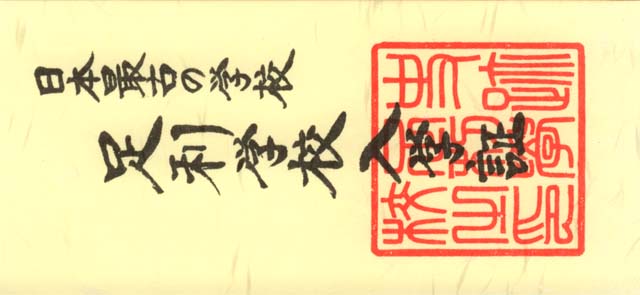 日本最古の学校
足利学校入学証